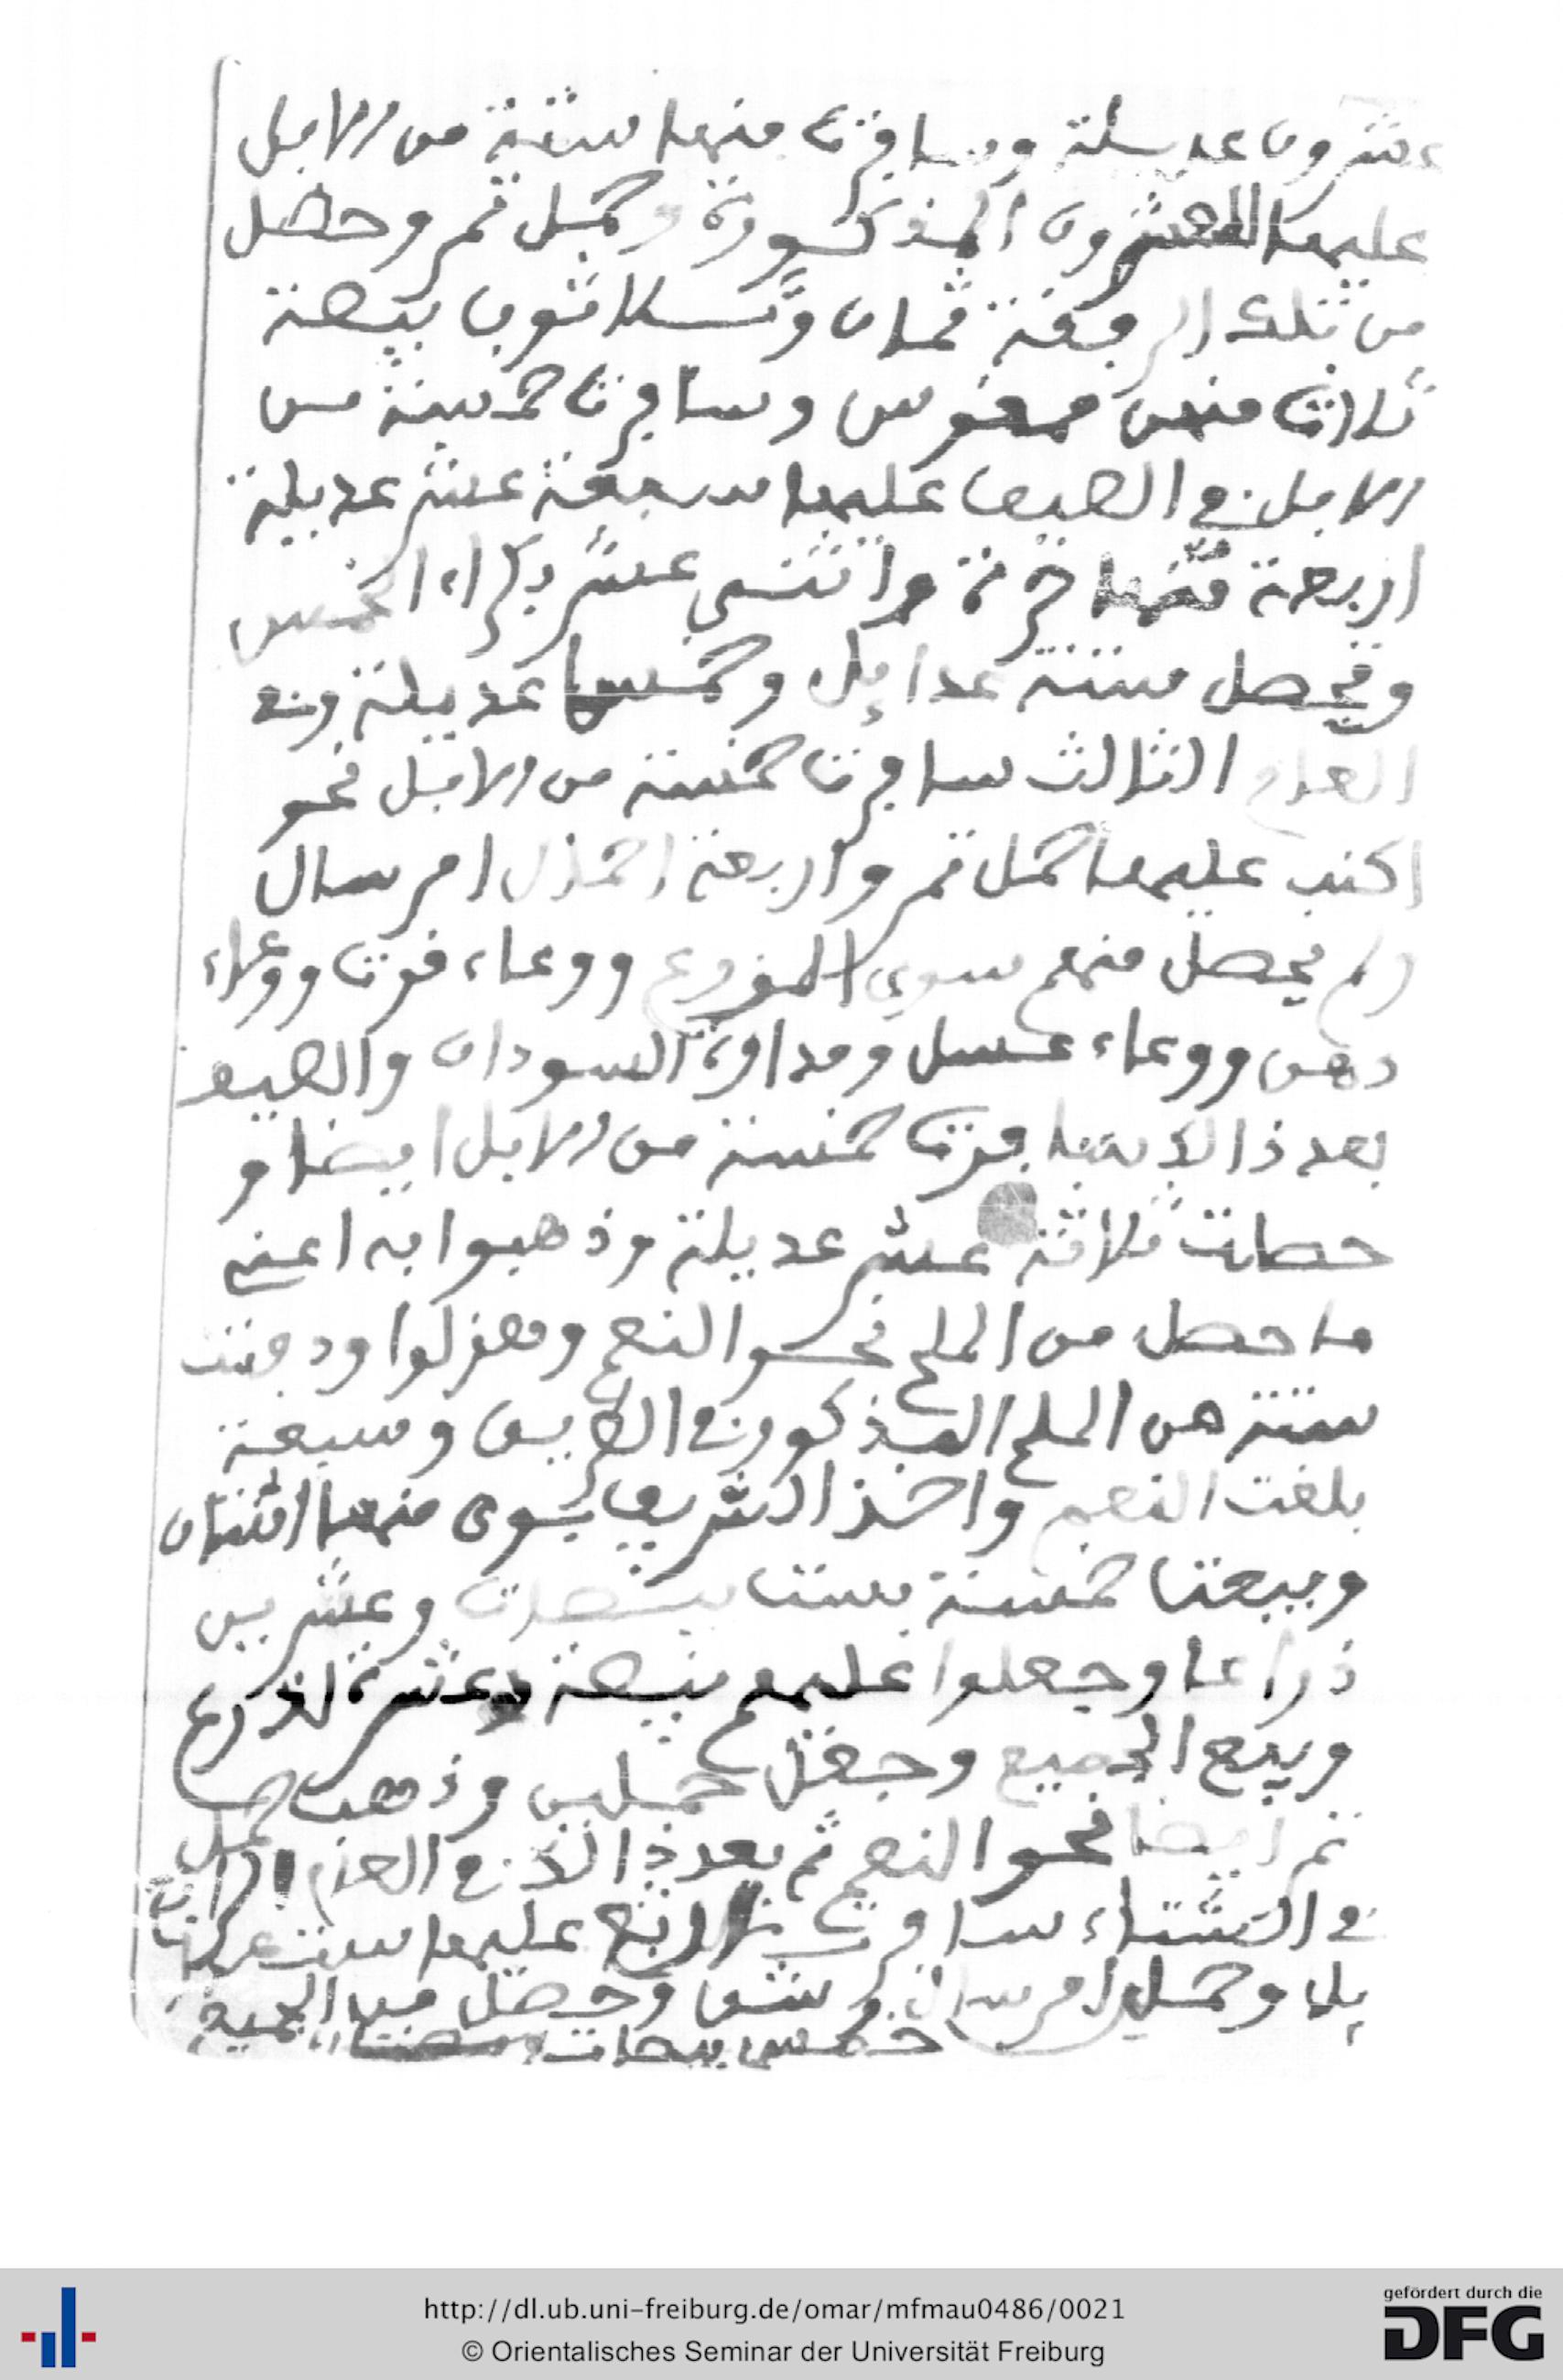 عشرون عديلة وسافرت منها ستة من الابل
عليها العشرون المذكورة وحمل تمر وحصل
من تلك الرفقة ثمان وثلاثون بيصة
ثلاث منهن وسافرت خمسة من
الابل في الصيف عليها سبعة عشر عديلة
اربعة منها حرة واثنى عشر بكراء الخمس
وتحصل ستة عدايل وخمس عديلة وفي
العام الثالث سافرت خمسة من الابل نحو
عليها حمل تمر واربعة احمال امرسال
ولم يحصل منهم سوى ووعاء فوت ووعاء
دهن ووعاء عسل ومداوة السودان والصيف
بعد ذالك سافرت خمسة من الابل ايضا و
حصلت ثلاثة عشر عديلة وذهبوا به اعني
ما حصل من الملح نحو النعم وهزلوا ودفنت
ستة من الملح المذكور في الطريق وسبعة
بلغت النعم واخذ الشريف سوى منها اثنان
وبيعتا خمسة بست بيصات وعشرين
ذراعا وجعلوا عليهم بيصة وعشرة اذرع
وبيع الجميع وجعل حملين وذهب حمل
تمر ايضا نحو النعم ثم بعد ذالك في العام الرابع
في الشتاء سافرت اربع عليها ست عدايل
وحمل امرسال وحصل من الجميع
خمس بيصات
http://dl.ub.uni-freiburg.de/omar/mfmau0486/0021
© Orientalisches Seminar der Universität Freiburg
gefördert durch die
DFG